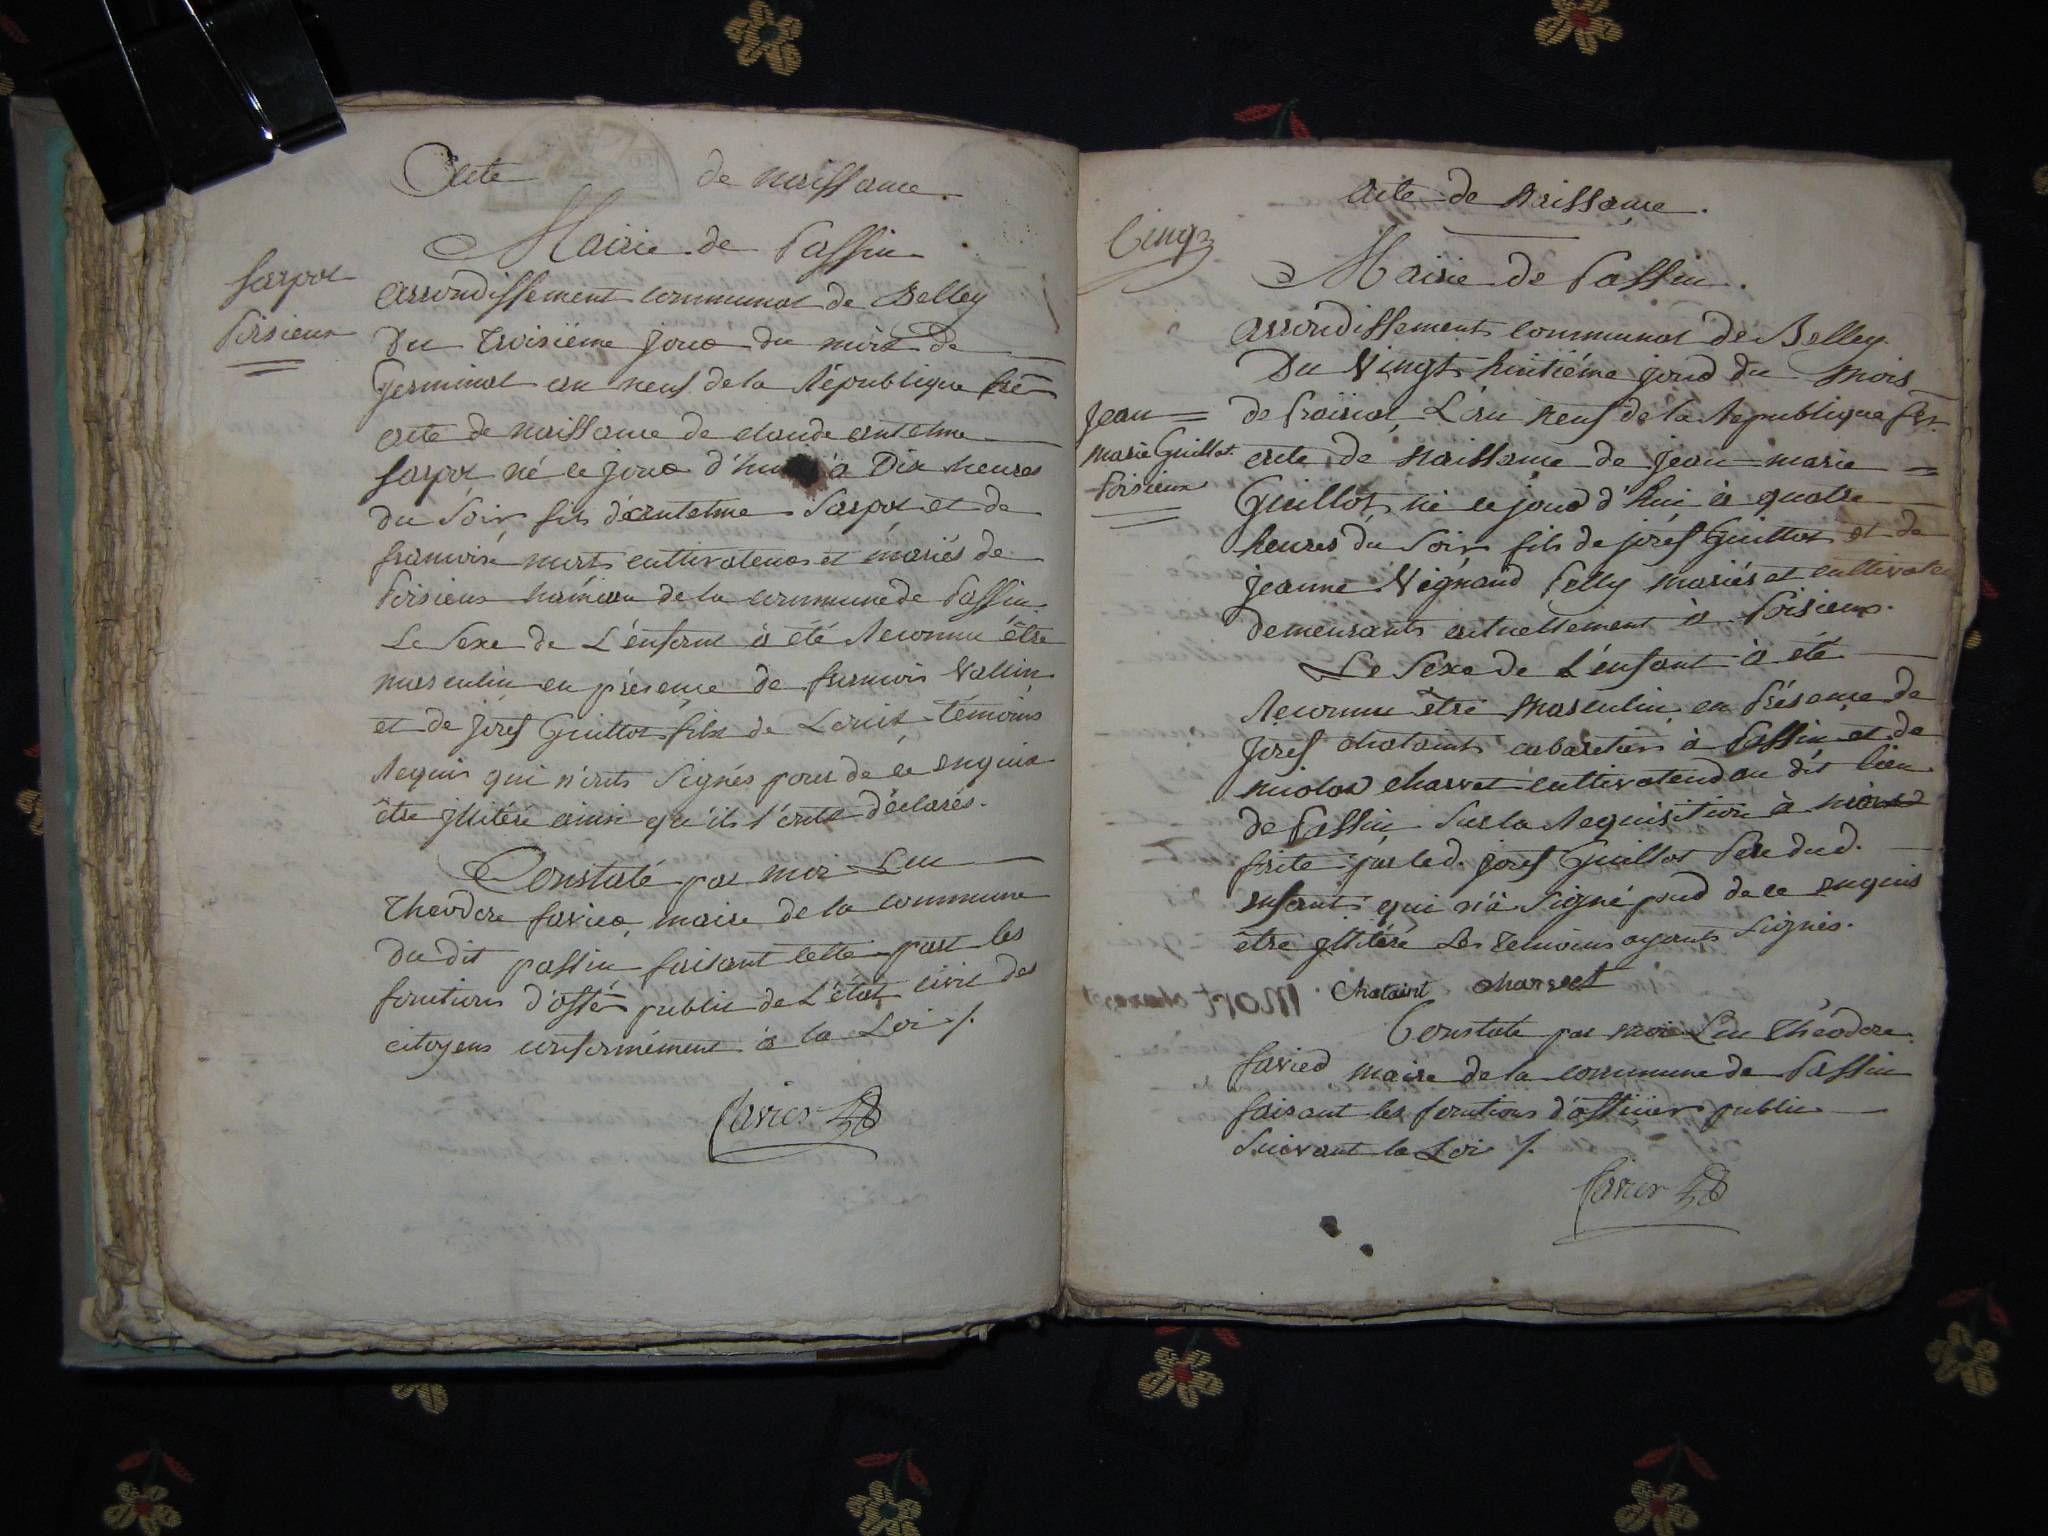 Acte de naissance.
Mairie de Passin
Sarpol
Poisieux
arrondissement communal de Belley
Du troisiéme jour du mois de
Germinal an neuf de la République fré
acte de naissance de claude antelme
Sarpol né ce jour d'hui à Dix heures
du Soir fils d'antelme Sarpol et de
francoise cultivateurs et mariés de
Poisieux hameau de la commune de Passin.
Le Sexe de L'enfant à été Reconnu être
masculin en présence de francois Vallin
et de josef Guillot fils de Louis témoins
Requis qui n'onts Signés pour de ce enquis
être jllitéré ainsi qu'ils l'onts déclarés.
Constaté par moi Luc
Théodore favier, maire de la commune
du dit passin faisant cette part les
fonctions d'offér public de L'état civil des
citoyens conformément à la Loi /.
favier
acte de Naissance.
Cinq
Mairie de Passin.
arrondissement communal de Belley.
Du Vingt huitiéme jour du mois
de Prairial L'an neuf de la République fr.
Jean
marie Guillot
Poisieux
acte de Naissance de jean marie
Guillot né ce jour d'hui à quatre
heures du Soir fils de josef Guillot et de
jeanne Vignaud Pelly mariés et cultivate
demeurants actuellement à Poisieux.
Le Sexe de L'enfant à été
Reconnu être Masculin en Présence de
josef chataint cabaretier à Passin et de
nicolas charvet cultivateur au dit lieu
de Passin Sur la Requisition à
faite par led. josef Guillot Pere dud.
enfant qui n'à Signé pour de ce enquis
être jllitéré Les temoins ayants Signés.
Chataint charvet
Constaté par moi Luc Théodore
favier maire de la commune de Passin
faisant les fonctions d'officier public
Suivant la Loi /.
favier